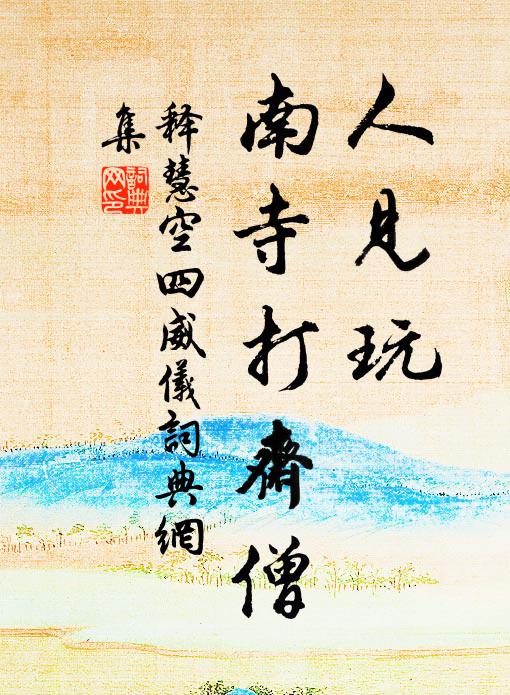 人見玩
南寺打齋僧
释慧空四威儀詞典網
集
詞典網印